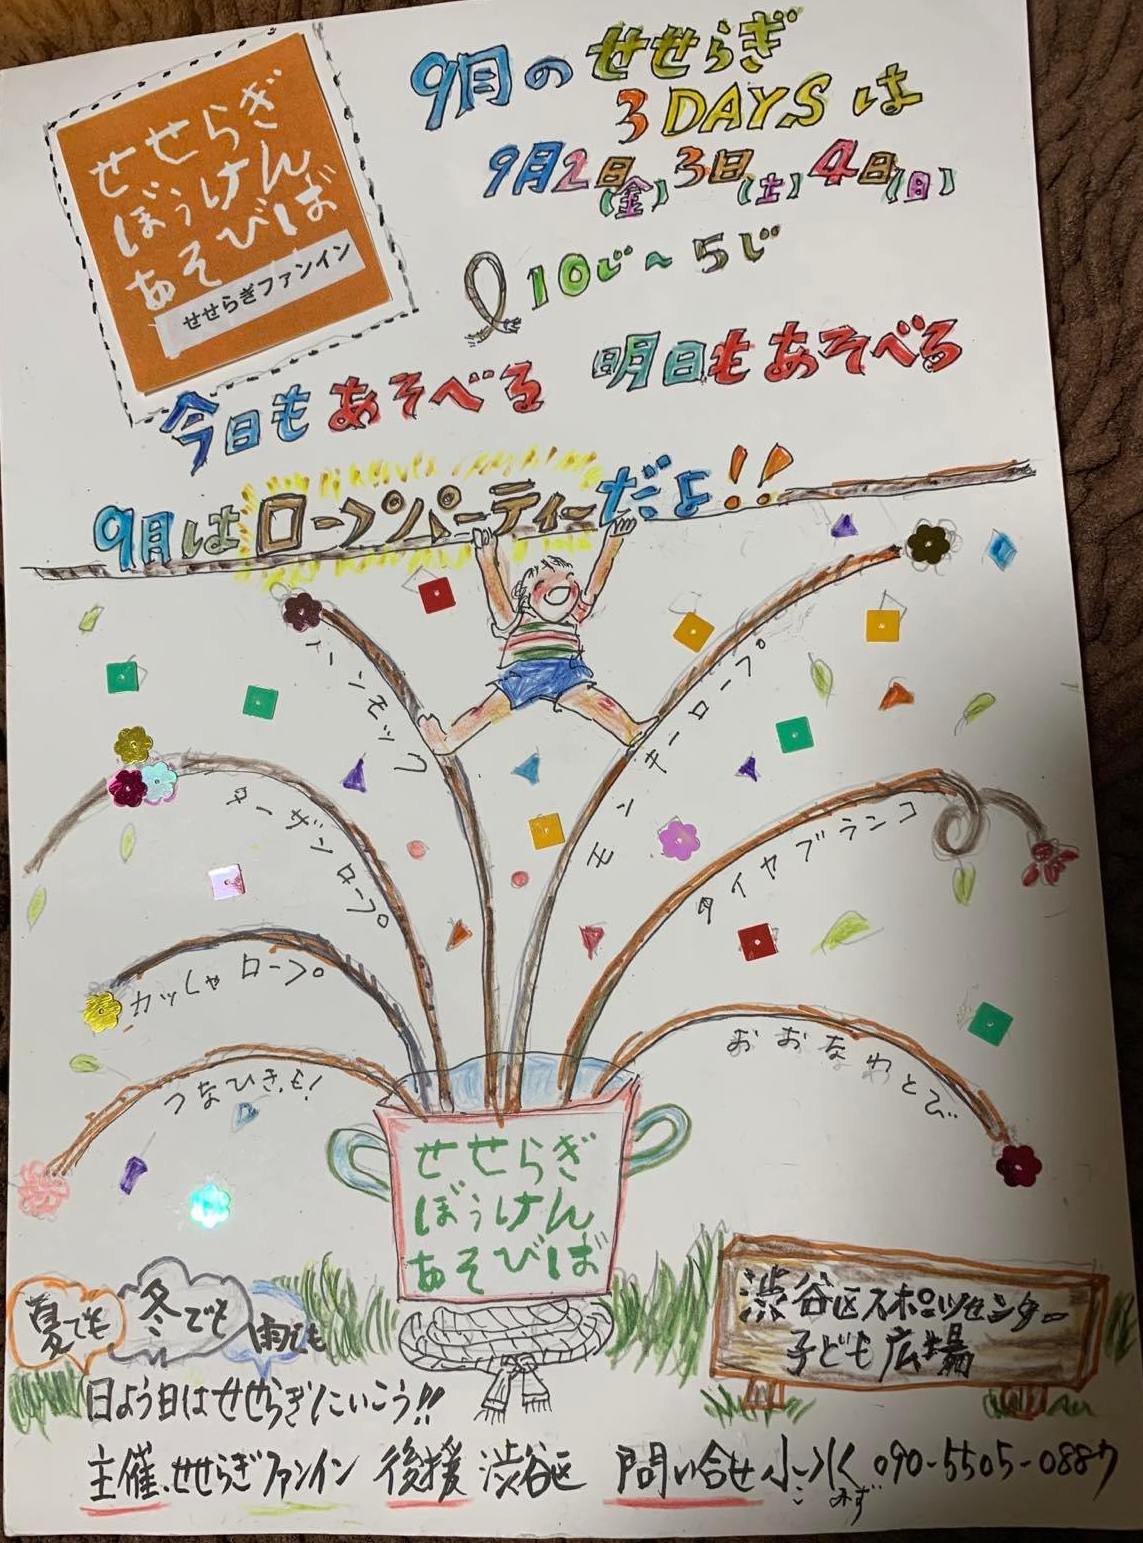 せせらぎ
ぼうけん
あそびば
せせらぎファンイン
9月のせせらぎ
3DAYSは
9月2日(金)3日(土)4日(日)
10じ~5じ
今日もあそべる 明日もあそべる
9月はロープパーティーだよ!!
ハンモック
モンキーロープ
ターザンロープ
タイヤブランコ
カッしゃロープ
つなひきも!
おおなわとび
せせらぎ
ぼうけん
あそびば
夏でも 冬でも 雨でも
渋谷区スポーツセンター
子ども広場
日よう日はせせらぎにいこう!!
主催、せせらぎファンイン 後援 渋谷区 問い合せ 小水 090-5505-0887
こみず